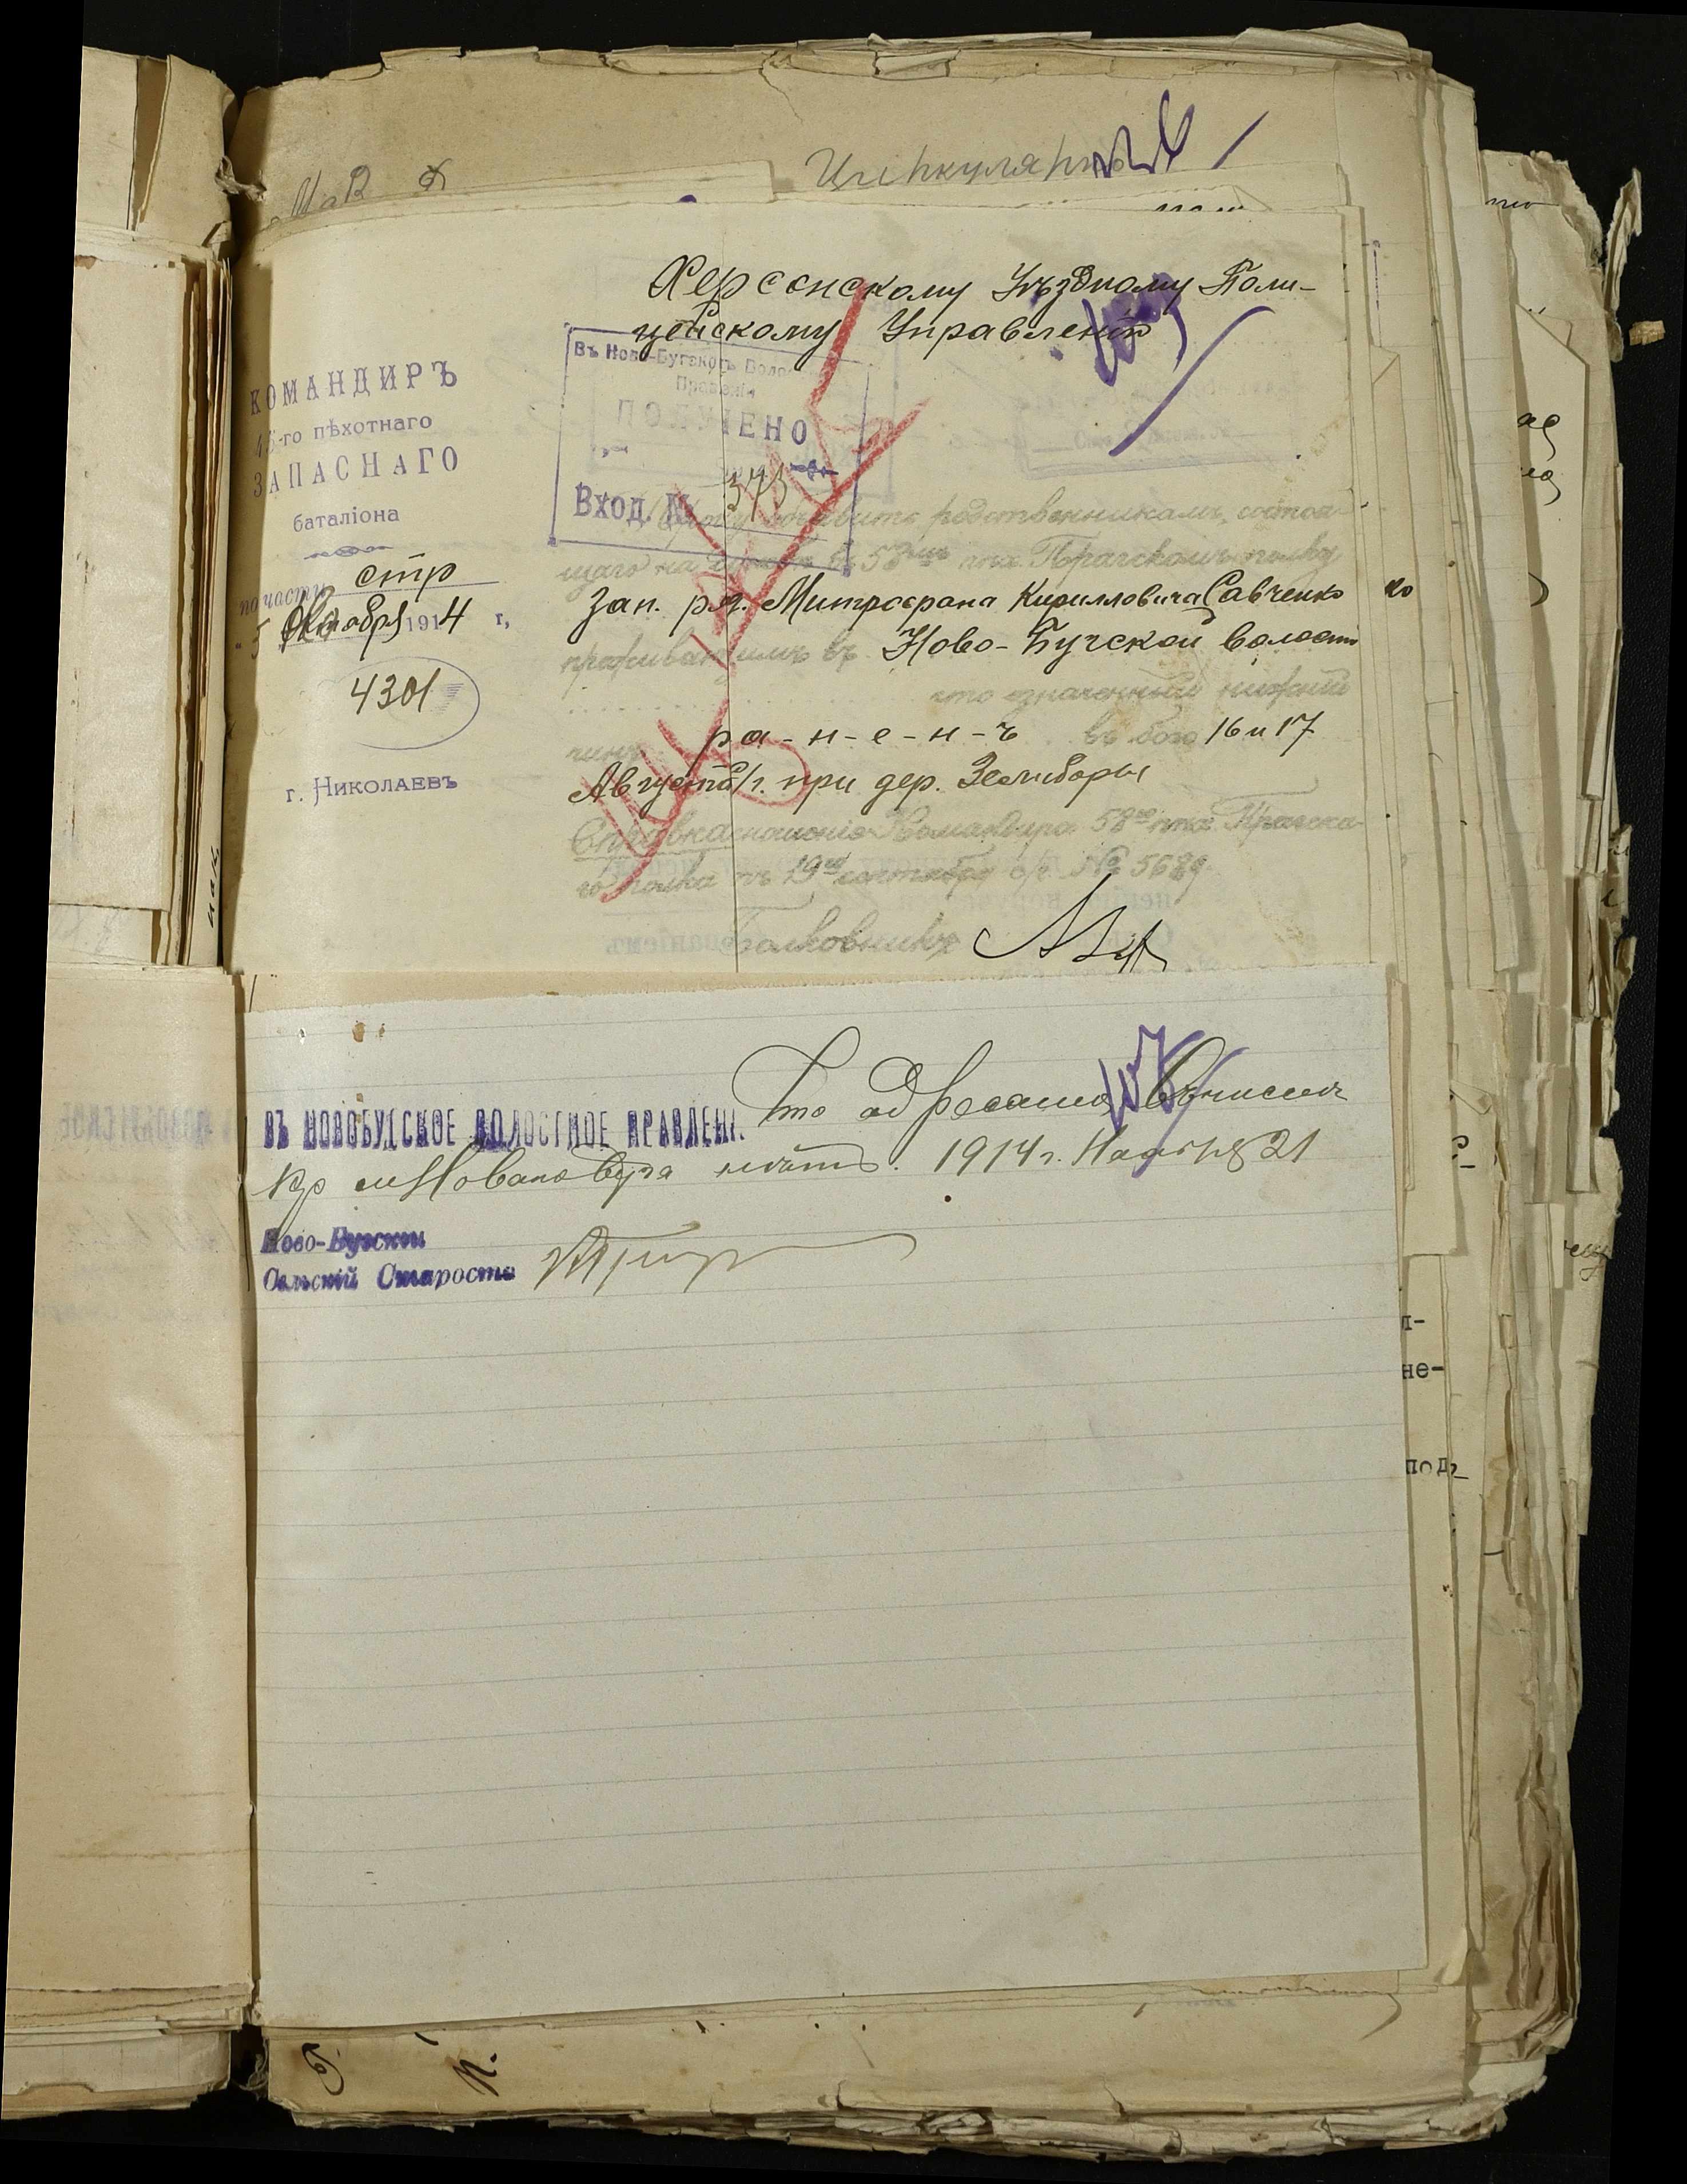 М. В. Д.
Циркулярно
Херсонскому Уѣздному Поли-
цейскому Управленію
Въ Ново-Бугскомъ Воло
Правленіи
ПОЛУЧЕНО
Вход. № 373
КОМАНДИРЪ
45-го пѣхотнаго
ЗАПАСНАГО
баталіона
по части стр
" 5 Октября 1914 г,
4301
г. НИКОЛАЕВЪ
Прошу объявить родственникамъ, состоя-
щаго на службѣ въ 58мъ пѣх. Прагскомъ полку
Зап. ряд. Митрофана Кирилловича Савченко
проживающимъ въ Ново-Бугской волости
что означенный нижній
чинъ р а - н - е - н - ъ въ бою 16 и 17
Августа с/г. при дер. Желиборы
Справка: сношеніе Командира 58го пѣх. Прагска-
го полка отъ 19го сентября с/г № 5689
Полковникъ
ВЪ НОВОБУГСКОЕ ВОЛОСТНОЕ ПРАВЛЕНІ.
Что адресата
нѣтъ. 1914 г. Ноября 21
Ново-Бугскій
Сельскій Староста
л-
не-
под